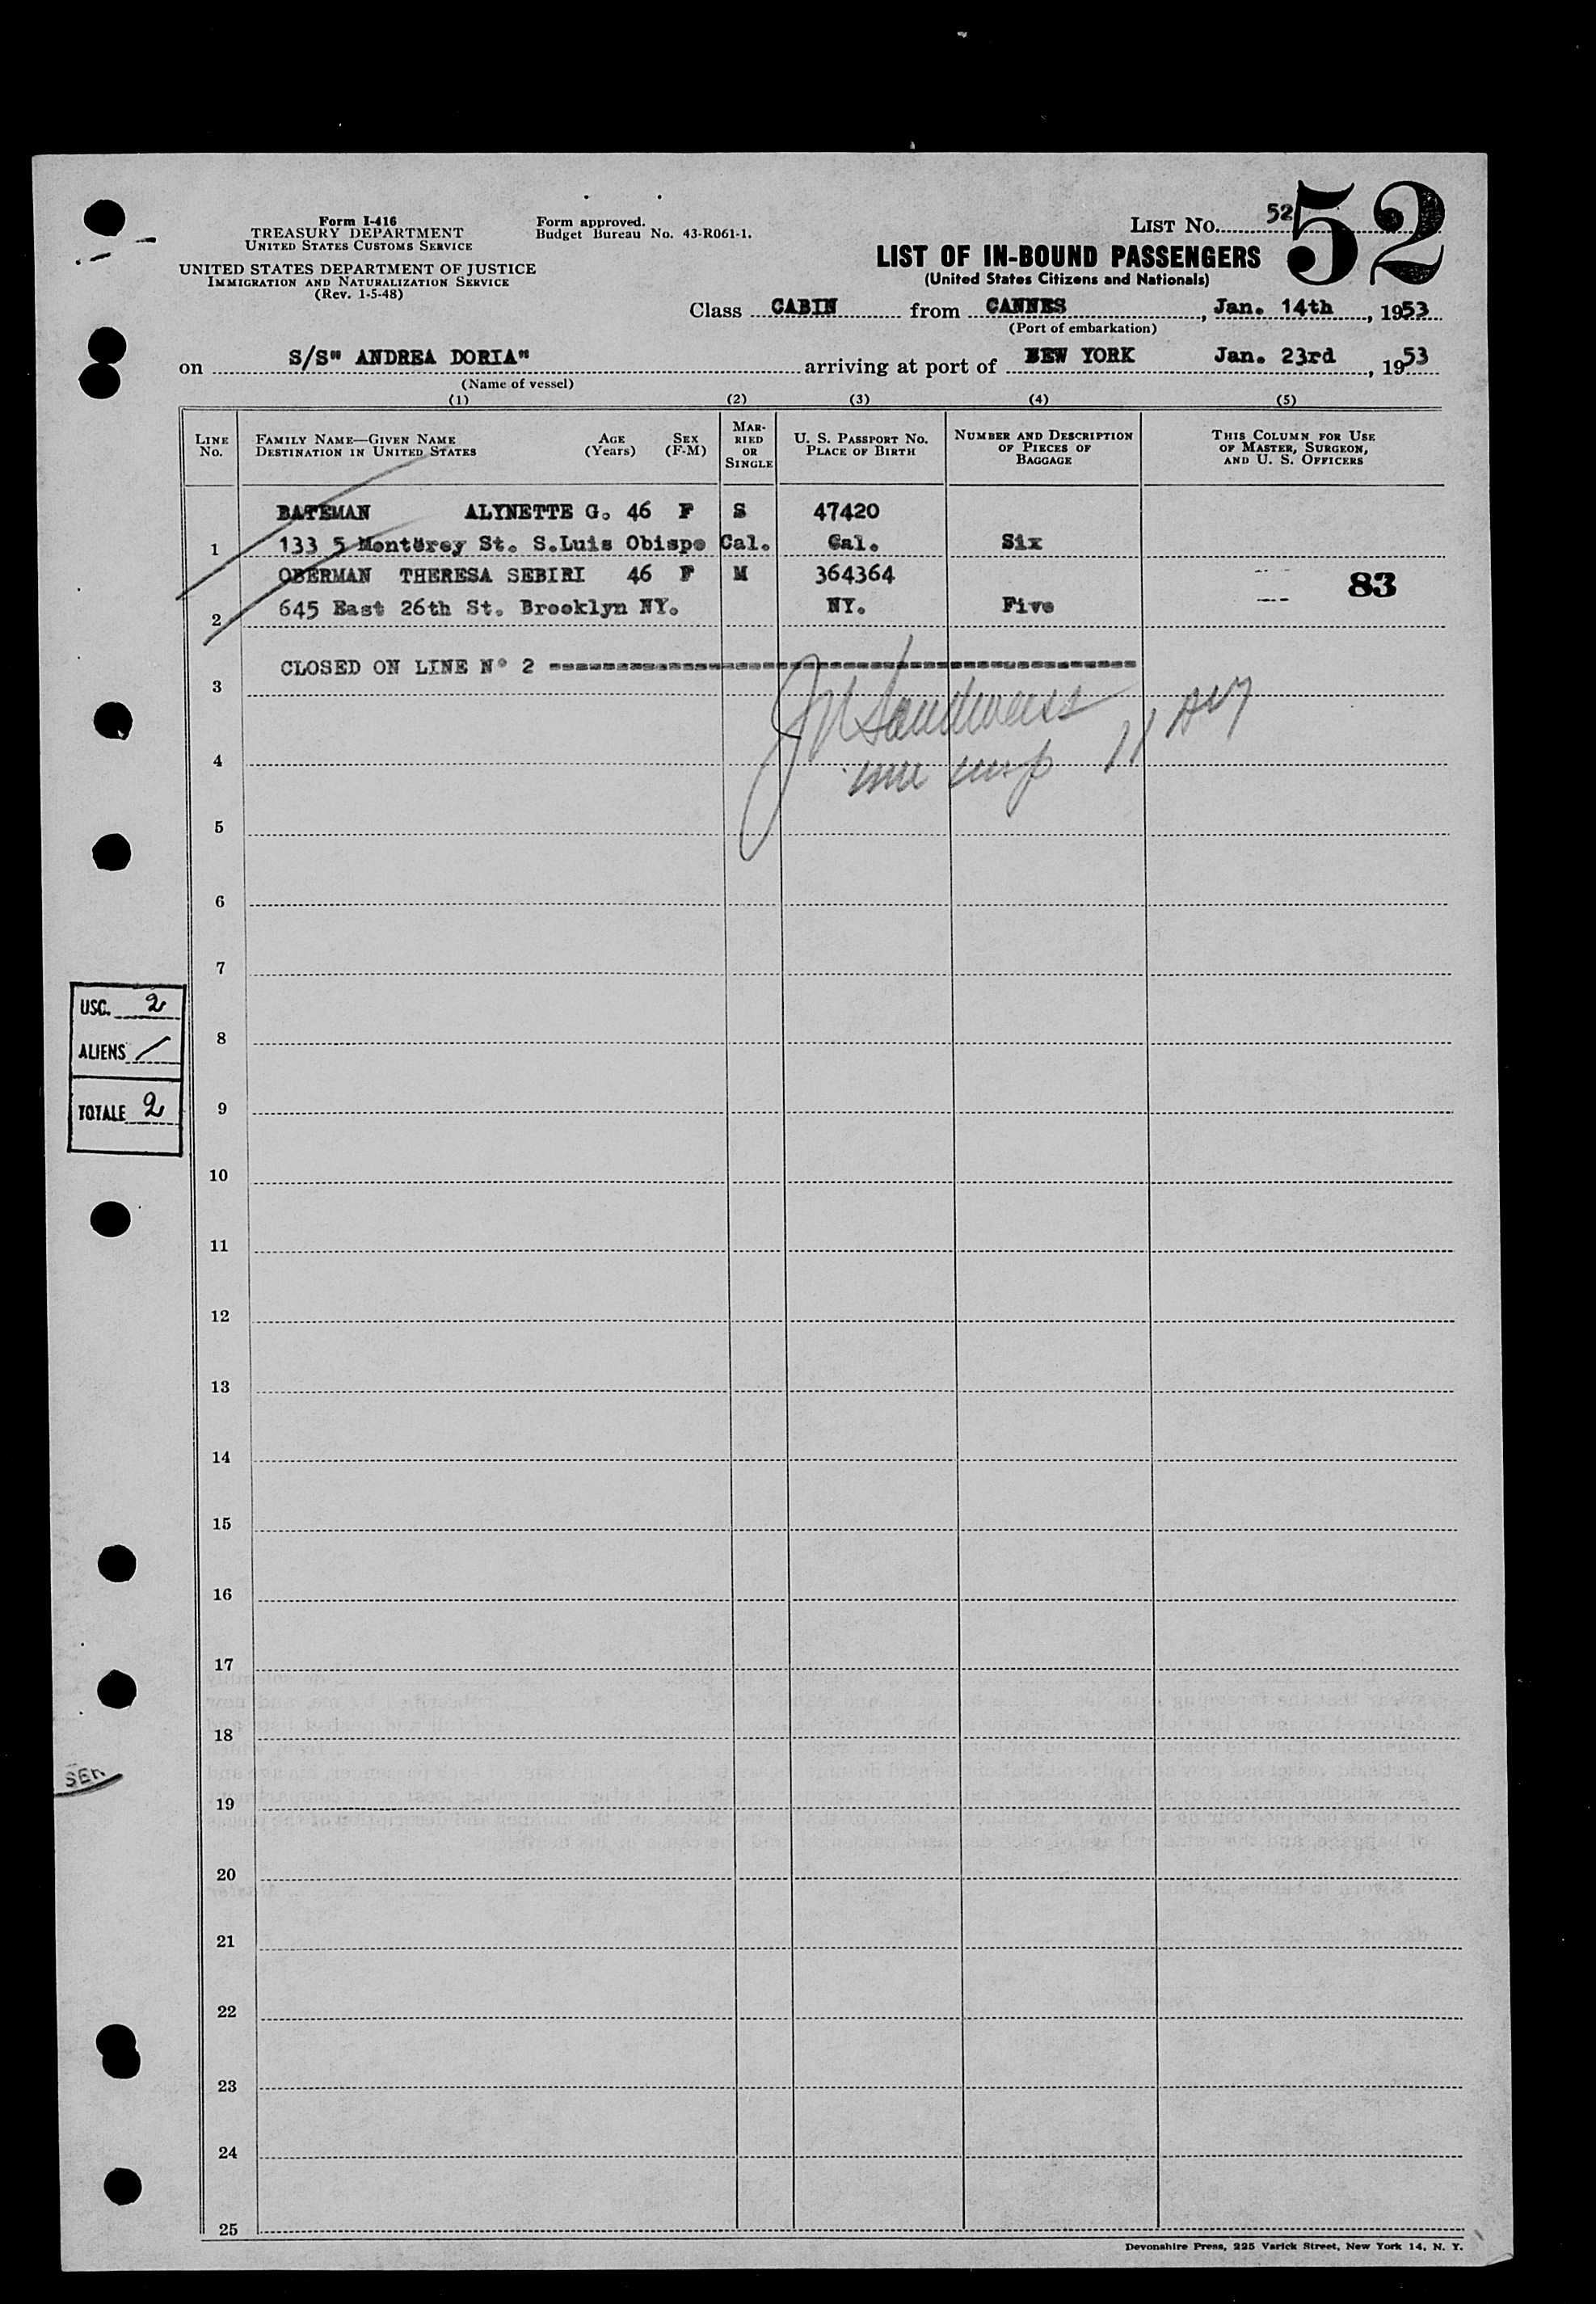 52
Form I-416
TREASURY DEPARTMENT
UNITED STATES CUSTOMS SERVICE
UNITED STATES DEPARTMENT OF JUSTICE
IMMIGRATION AND NATURALIZATION SERVICE
(Rev. 1-5-48)
Form approved.
Budget Bureau No. 43-R061-1.
LIST NO. 52
LIST OF IN-BOUND PASSENGERS
(United States Citizens and Nationals)
Class CABIN from CANNES, Jan. 14th, 1953
(Port of embarkation)
on S/S" ANDREA DORIA" arriving at port of NEW YORK Jan. 23rd, 1953
(Name of vessel)
(1) (2) (3) (4) (5)
LINE No. FAMILY NAME—GIVEN NAME DESTINATION IN UNITED STATES AGE (Years) SEX (F-M) MARRIED OR SINGLE U. S. PASSPORT NO. PLACE OF BIRTH NUMBER AND DESCRIPTION OF PIECES OF BAGGAGE THIS COLUMN FOR USE OF MASTER, SURGEON, AND U. S. OFFICERS
BATEMAN ALYNETTE G. 46 F S 47420
1 133 5 Monterey St. S.Luis Obispo Cal. Cal. Six
OBERMAN THERESA SEBIRI 46 F M 364364 83
2 645 East 26th St. Brooklyn NY. NY. Five
CLOSED ON LINE N° 2
3
4
5
6
7
USC. 2
8
ALIENS /
9
TOTALE 2
10
11
12
13
14
15
16
17
18
SEN
19
20
21
22
23
24
25
Devonshire Press, 225 Varick Street, New York 14, N. Y.